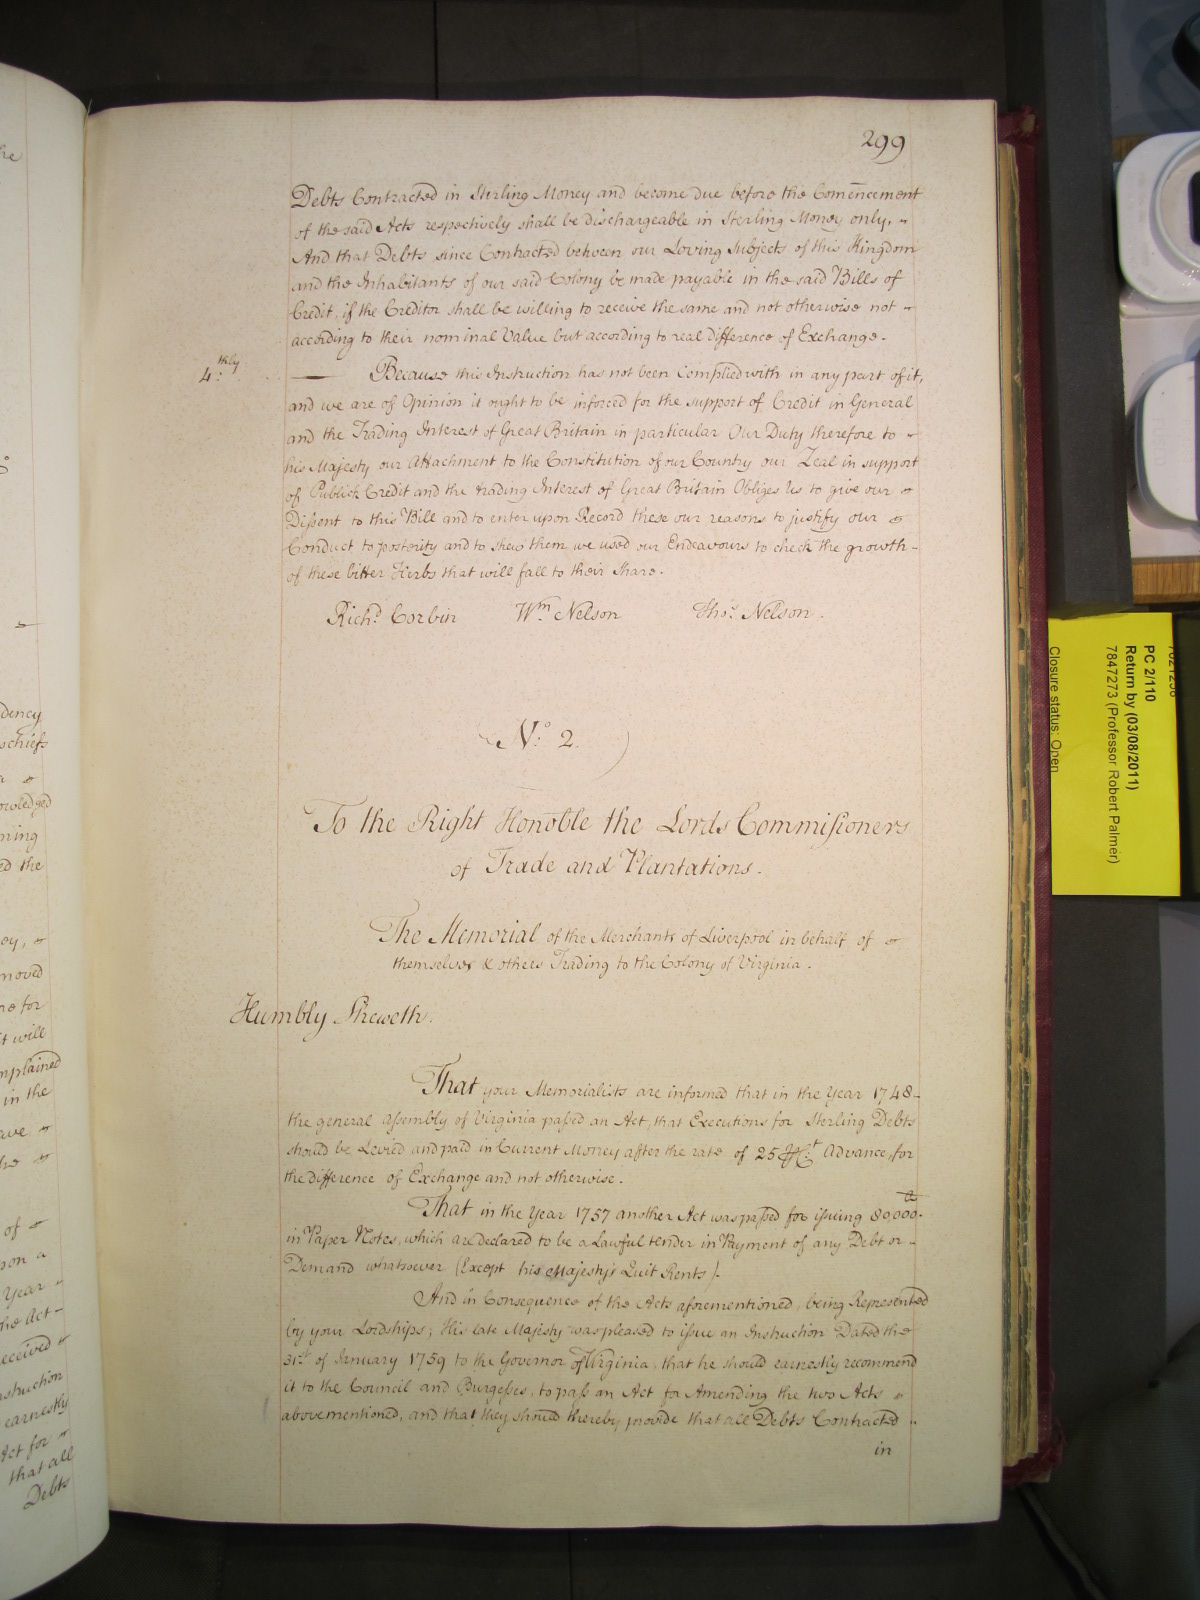 299
Debts Contracted in Sterling Money and become due before the Comēncement
of the said Acts respectively shall be dischargeable in Sterling Money only, -
And that Debts since Contracted between our Loving Subjects of this Kingdom
and the Inhabitants of our said Colony be made payable in the said Bills of
Credit, if the Creditor shall be willing to receive the same and not otherwise not -
according to their nominal Value but according to real difference of Exchange.
4:thly
—— Because this Instruction has not been Complied with in any part of it,
and we are of Opinion it ought to be inforced for the support of Credit in General
and the Trading Interest of Great Britain in particular Our Duty therefore to -
his Majesty our Attachment to the Constitution of our Country our Zeal in support
of Publick Credit and the trading Interest of Great Britain Obliges Us to give our -
Dissent to this Bill and to enter upon Record these our reasons to justify our -
Conduct to posterity and to shew them we used our Endeavours to check the growth -
of these bitter Herbs that will fall to their share.
Richd. Corbin Wm. Nelson Thos. Nelson.
No. 2.
To the Right Honoble the Lords Commissioners
of Trade and Plantations.
The Memorial of the Merchants of Liverpool in behalf of -
themselves & others Trading to the Colony of Virginia.
Humbly Sheweth.
That your Memorialists are informed that in the Year 1748 -
the general Assembly of Virginia passed an Act, that Executions for Sterling Debts
should be Levied and paid in Current Money after the rate of 25 ⅌ Ct. Advance, for
the difference of Exchange and not otherwise.
That in the Year 1757 another Act was passed for issuing 80,000.
in Paper Notes, which are declared to be a Lawful tender in Payment of any Debt or -
Demand whatsoever (Except his Majesty's Quit Rents).
And in Consequence of the Acts aforementioned, being Represented
by your Lordships; His late Majesty was pleased to issue an Instruction Dated the
31st. of January 1759 to the Governor of Virginia, that he should earnestly recommend
it to the Council and Burgesses, to pass an Act for Amending the two Acts -
abovementioned, and that they should thereby provide that all Debts Contracted -
in
dency
schiefs
owledged
ning
ed the
moved
ne for
it will
mplained
in the
ave
of -
pon a
Year -
he Act -
eceived -
struction
earnestly
Act for -
that all
Debts
PC 2/110
Return by (03/08/2011)
7847273 (Professor Robert Palmer)
Closure status: Open